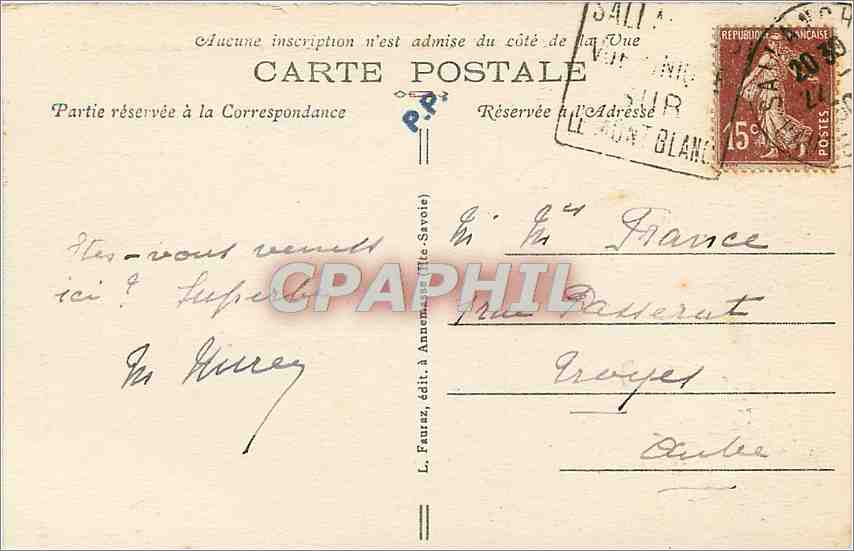 Aucune inscription n'est admise du côté de la Vue
CARTE POSTALE
Partie réservée à la Correspondance
Réservée à l'Adresse
P.P.
SUR
LE MONT BLANC
20 30
REPUBLIQUE FRANÇAISE
15c
POSTES
L. Fauraz, édit. à Annemasse (Hte-Savoie)
Êtes-vous venus
ici ? Superbe
M
CPAPHIL
M Me France
rue Passerat
Troyes
Aube